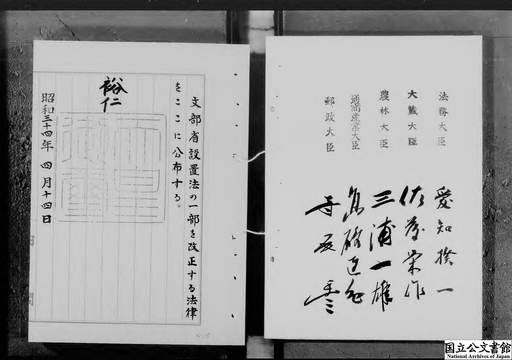 文部省設置法の一部を改正する法律
をここに公布する。
裕仁
昭和三十四年四月十四日
法務大臣 愛知揆一
大蔵大臣 佐藤栄作
農林大臣 三浦一雄
通商産業大臣 高碕達之助
郵政大臣 寺尾豊
国立公文書館
National Archives of Japan